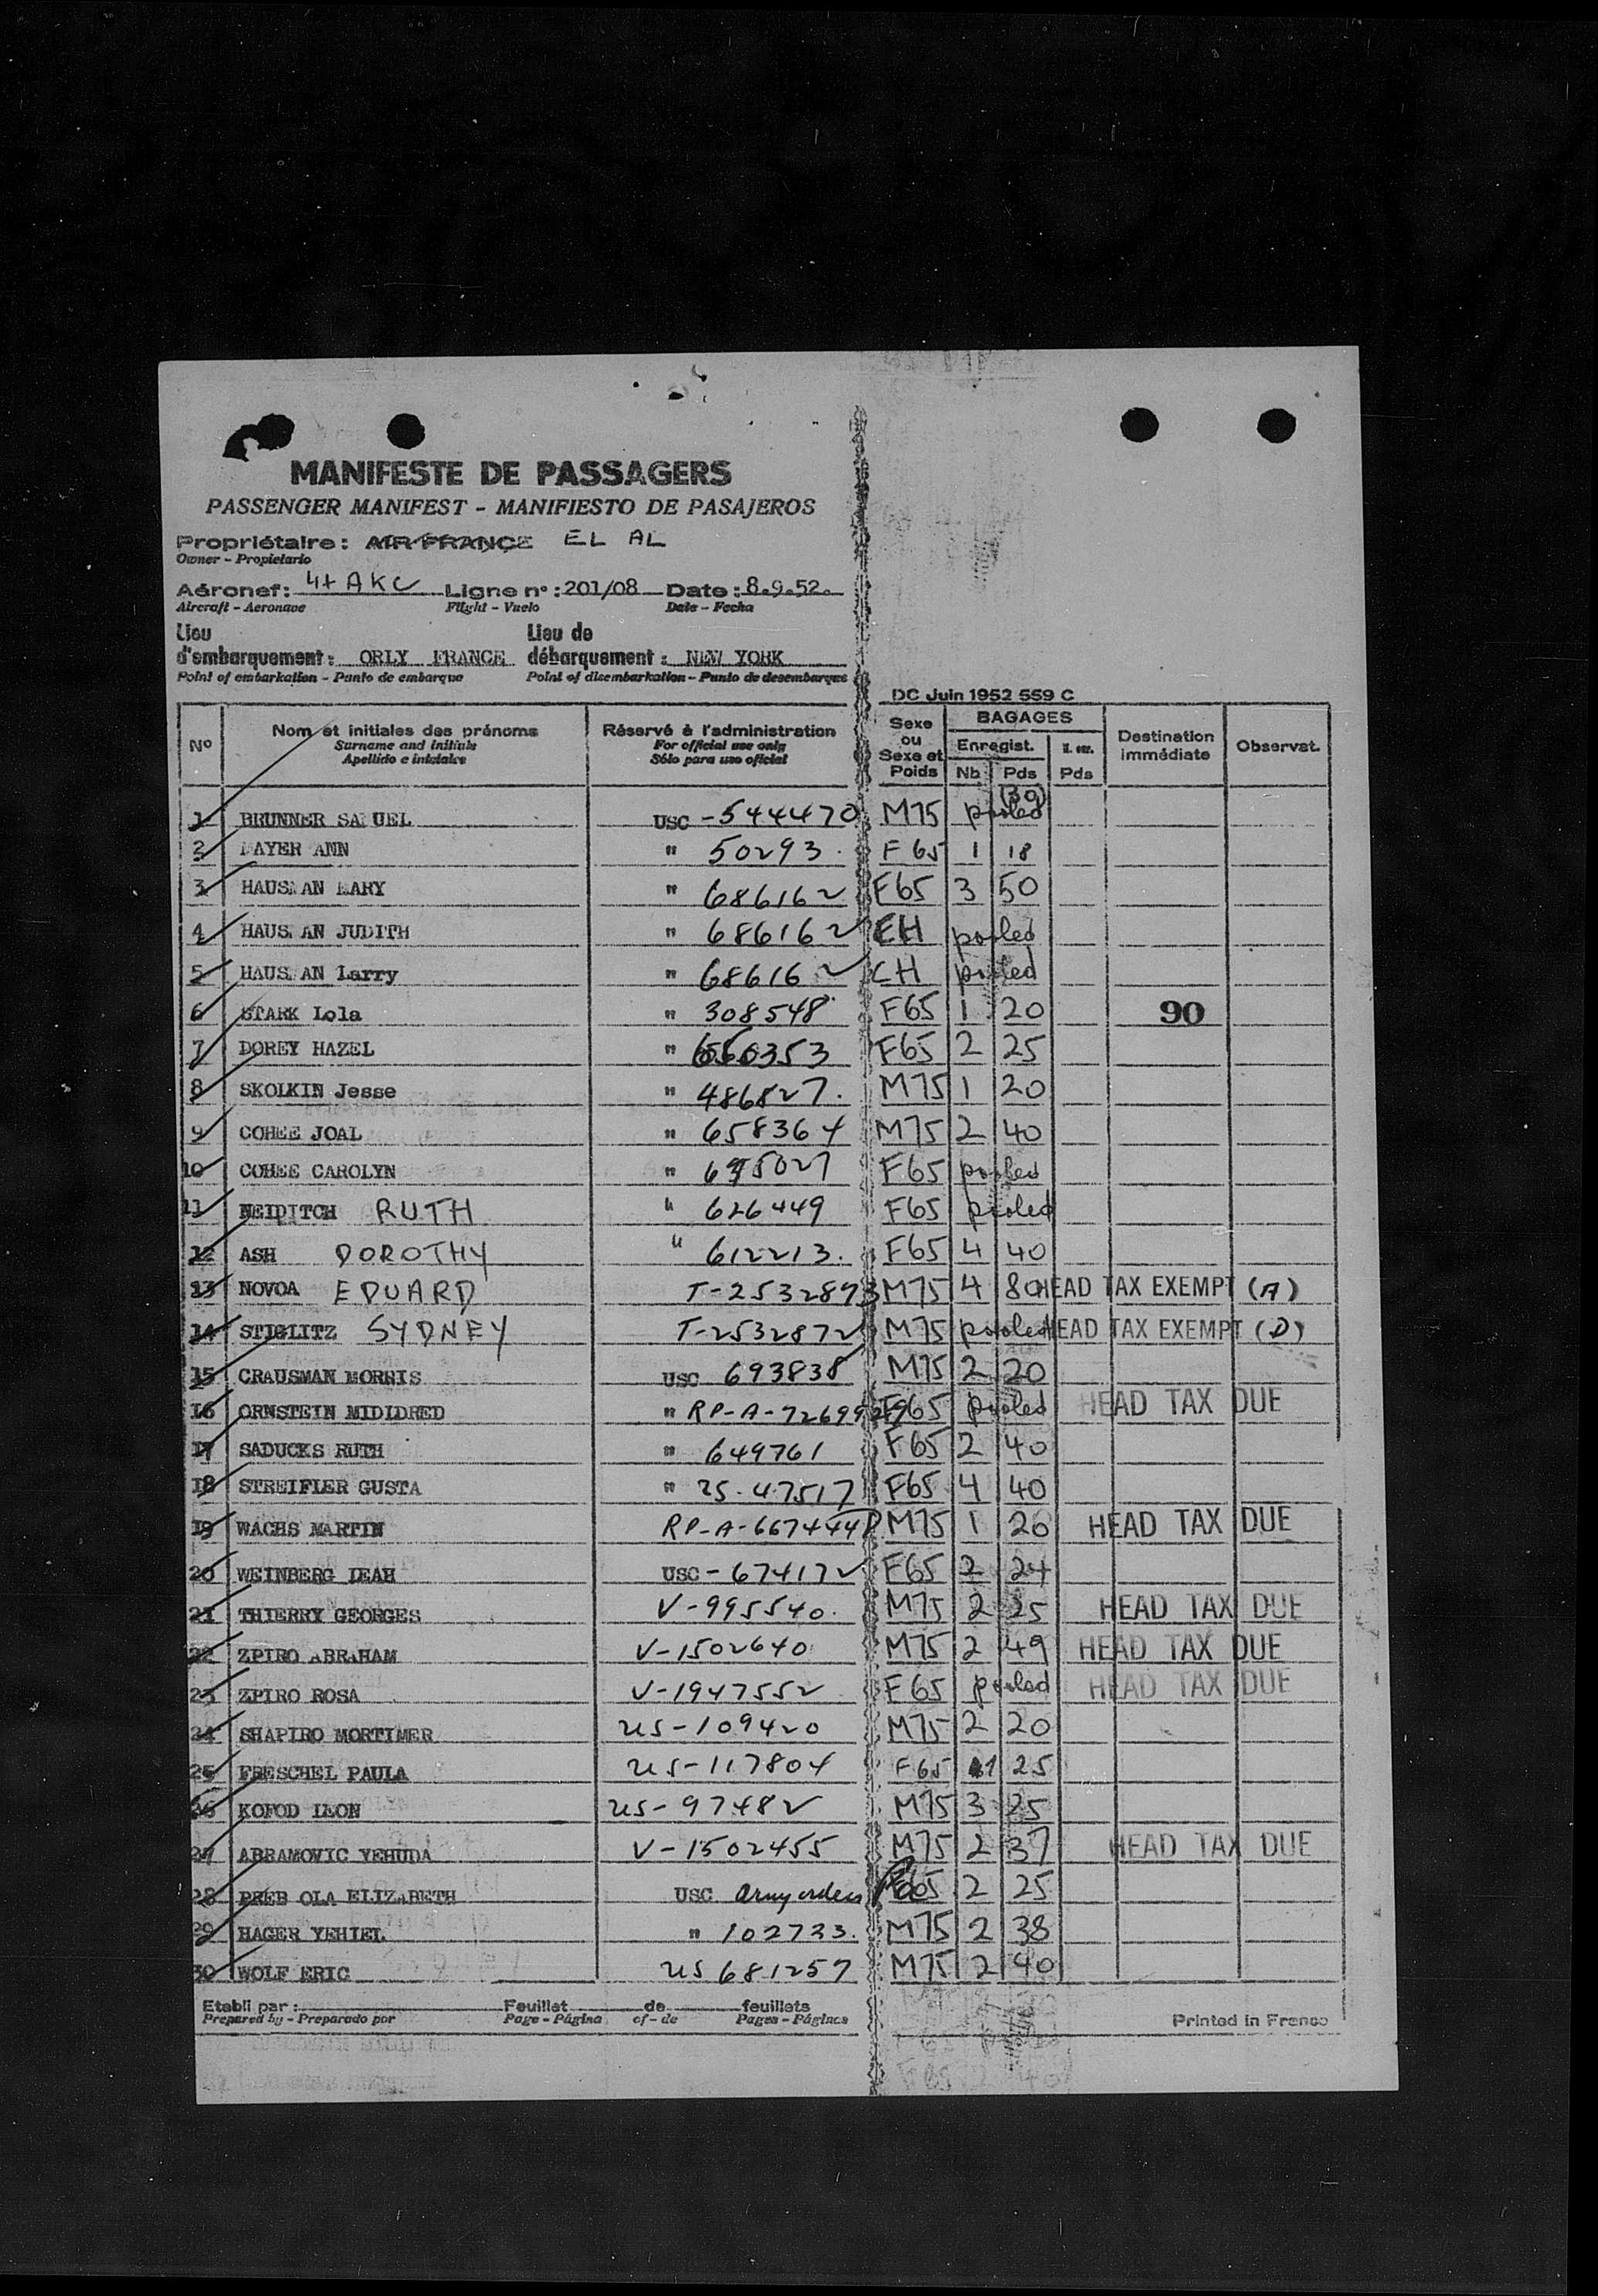 MANIFESTE DE PASSAGERS
PASSENGER MANIFEST - MANIFIESTO DE PASAJEROS
Propriétaire : AIR FRANCE EL AL
Owner - Propietario
Aéronef : 4X AKC Ligne n° : 201/08 Date : 8.9.52.
Aircraft - Aeronave Flight - Vuelo Date - Fecha
Lieu Lieu de
d'embarquement : ORLY FRANCE débarquement : NEW YORK
Point of embarkation - Punto de embarque Point of disembarkation - Punto de desembarque
DC Juin 1952 559 C
N° Nom et initiales des prénoms Réservé à l'administration Sexe ou Sexe et Poids BAGAGES Destination immédiate Observat.
Surname and initials For official use only Enregist.
Apellido e iniciales Sólo para uso oficial Nb Pds Pds
1 BRUNNER SA UEL USC -544470 M75 pooled (30)
2 AYER ANN " 50293 F65 1 18
3 HAUS AN MARY " 686162 F65 3 50
4 HAUS AN JUDITH " 686162 CH pooled
5 HAUS AN Larry " 686162 CH pooled
6 STARK Lola " 308548 F65 1 20 90
7 DOREY HAZEL " 353 F65 2 25
8 SKOLKIN Jesse " 486827. M75 1 20
9 COHEE JOAL " 658364 M75 2 40
10 COHEE CAROLYN " F65 pooled
11 NEIDITCH RUTH " 626449 F65 pooled
12 ASH DOROTHY " 612213. F65 4 40
13 NOVOA EDUARD T-2532873 M75 4 80 HEAD TAX EXEMPT (A)
14 STIGLITZ SYDNEY T-2532872 M75 pooled HEAD TAX EXEMPT (D)
15 CRAUSMAN MORRIS USC 693838 M75 2 20
16 ORNSTEIN MIDIDRED " RP-A- F65 pooled HEAD TAX DUE
17 SADUCKS RUTH " 649761 F65 2 40
18 STREIFLER GUSTA " 25-47517 F65 4 40
19 WACHS MARTIN RP-A- M75 1 20 HEAD TAX DUE
20 WEINBERG LEAH USC - 674172 F65 2 24
21 THIERRY GEORGES V-995540. M75 2 25 HEAD TAX DUE
22 ZPIRO ABRAHAM V-1502640 M75 2 49 HEAD TAX DUE
23 ZPIRO ROSA V-1947552 F65 pooled HEAD TAX DUE
24 SHAPIRO MORTIMER US-109420 M75 2 20
25 FRESCHEL PAULA US-117804 F65 1 25
26 KOFOD LEON US-97482 M75 3 25
27 ABRAMOVIC YEHUDA V-1502455 M75 2 37 HEAD TAX DUE
28 OLA ELIZABETH USC Army orders F65 2 25
29 HAGER YEHIEL " 102733. M75 2 38
30 WOLF ERIC US 681257 M75 2 40
Etabli par : Feuillet de feuillets
Prepared by - Preparado por Page - Página of - de Pages - Páginas Printed in France